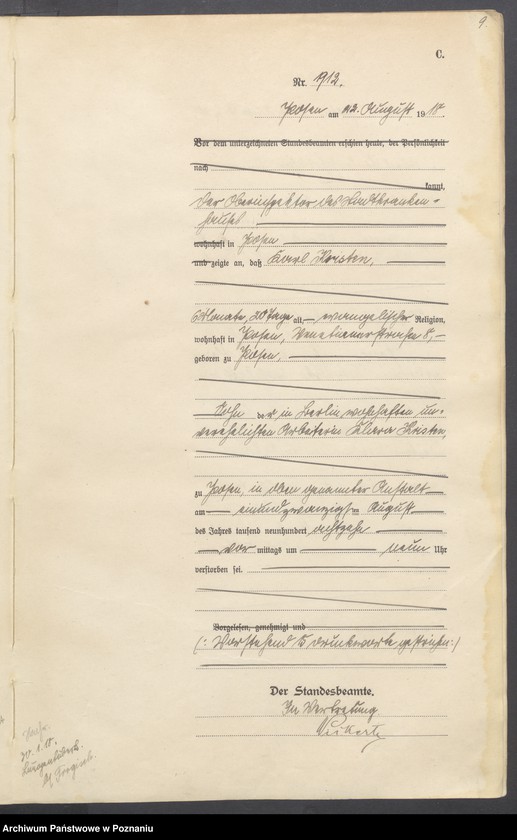 9.
C.
Nr. 912.
Posen am 22. August 1918.
Vor dem unterzeichneten Standesbeamten erschien heute, der Persönlichkeit
nach
kannt,
Der Oberinspektor des Stadtkranken-
hauses
wohnhaft in Posen
und zeigte an, daß Karl Kristen,
6 Monate, 20 Tage alt, evangelischer Religion,
wohnhaft in Posen, Venetianerstrasse 8,
geboren zu Posen,
Sohn der in Berlin wohnhaften un-
verehelichten Arbeiterin Klara Kristen,
zu Posen, in oben genannter Anstalt
am einundzwanzigsten August
des Jahres tausend neunhundert achtzehn
vor mittags um neun Uhr
verstorben sei.
Vorgelesen, genehmigt und
(: Vorstehend 15 Druckworte gestrichen :)
Der Standesbeamte.
In Vertretung
Archiwum Państwowe w Poznaniu